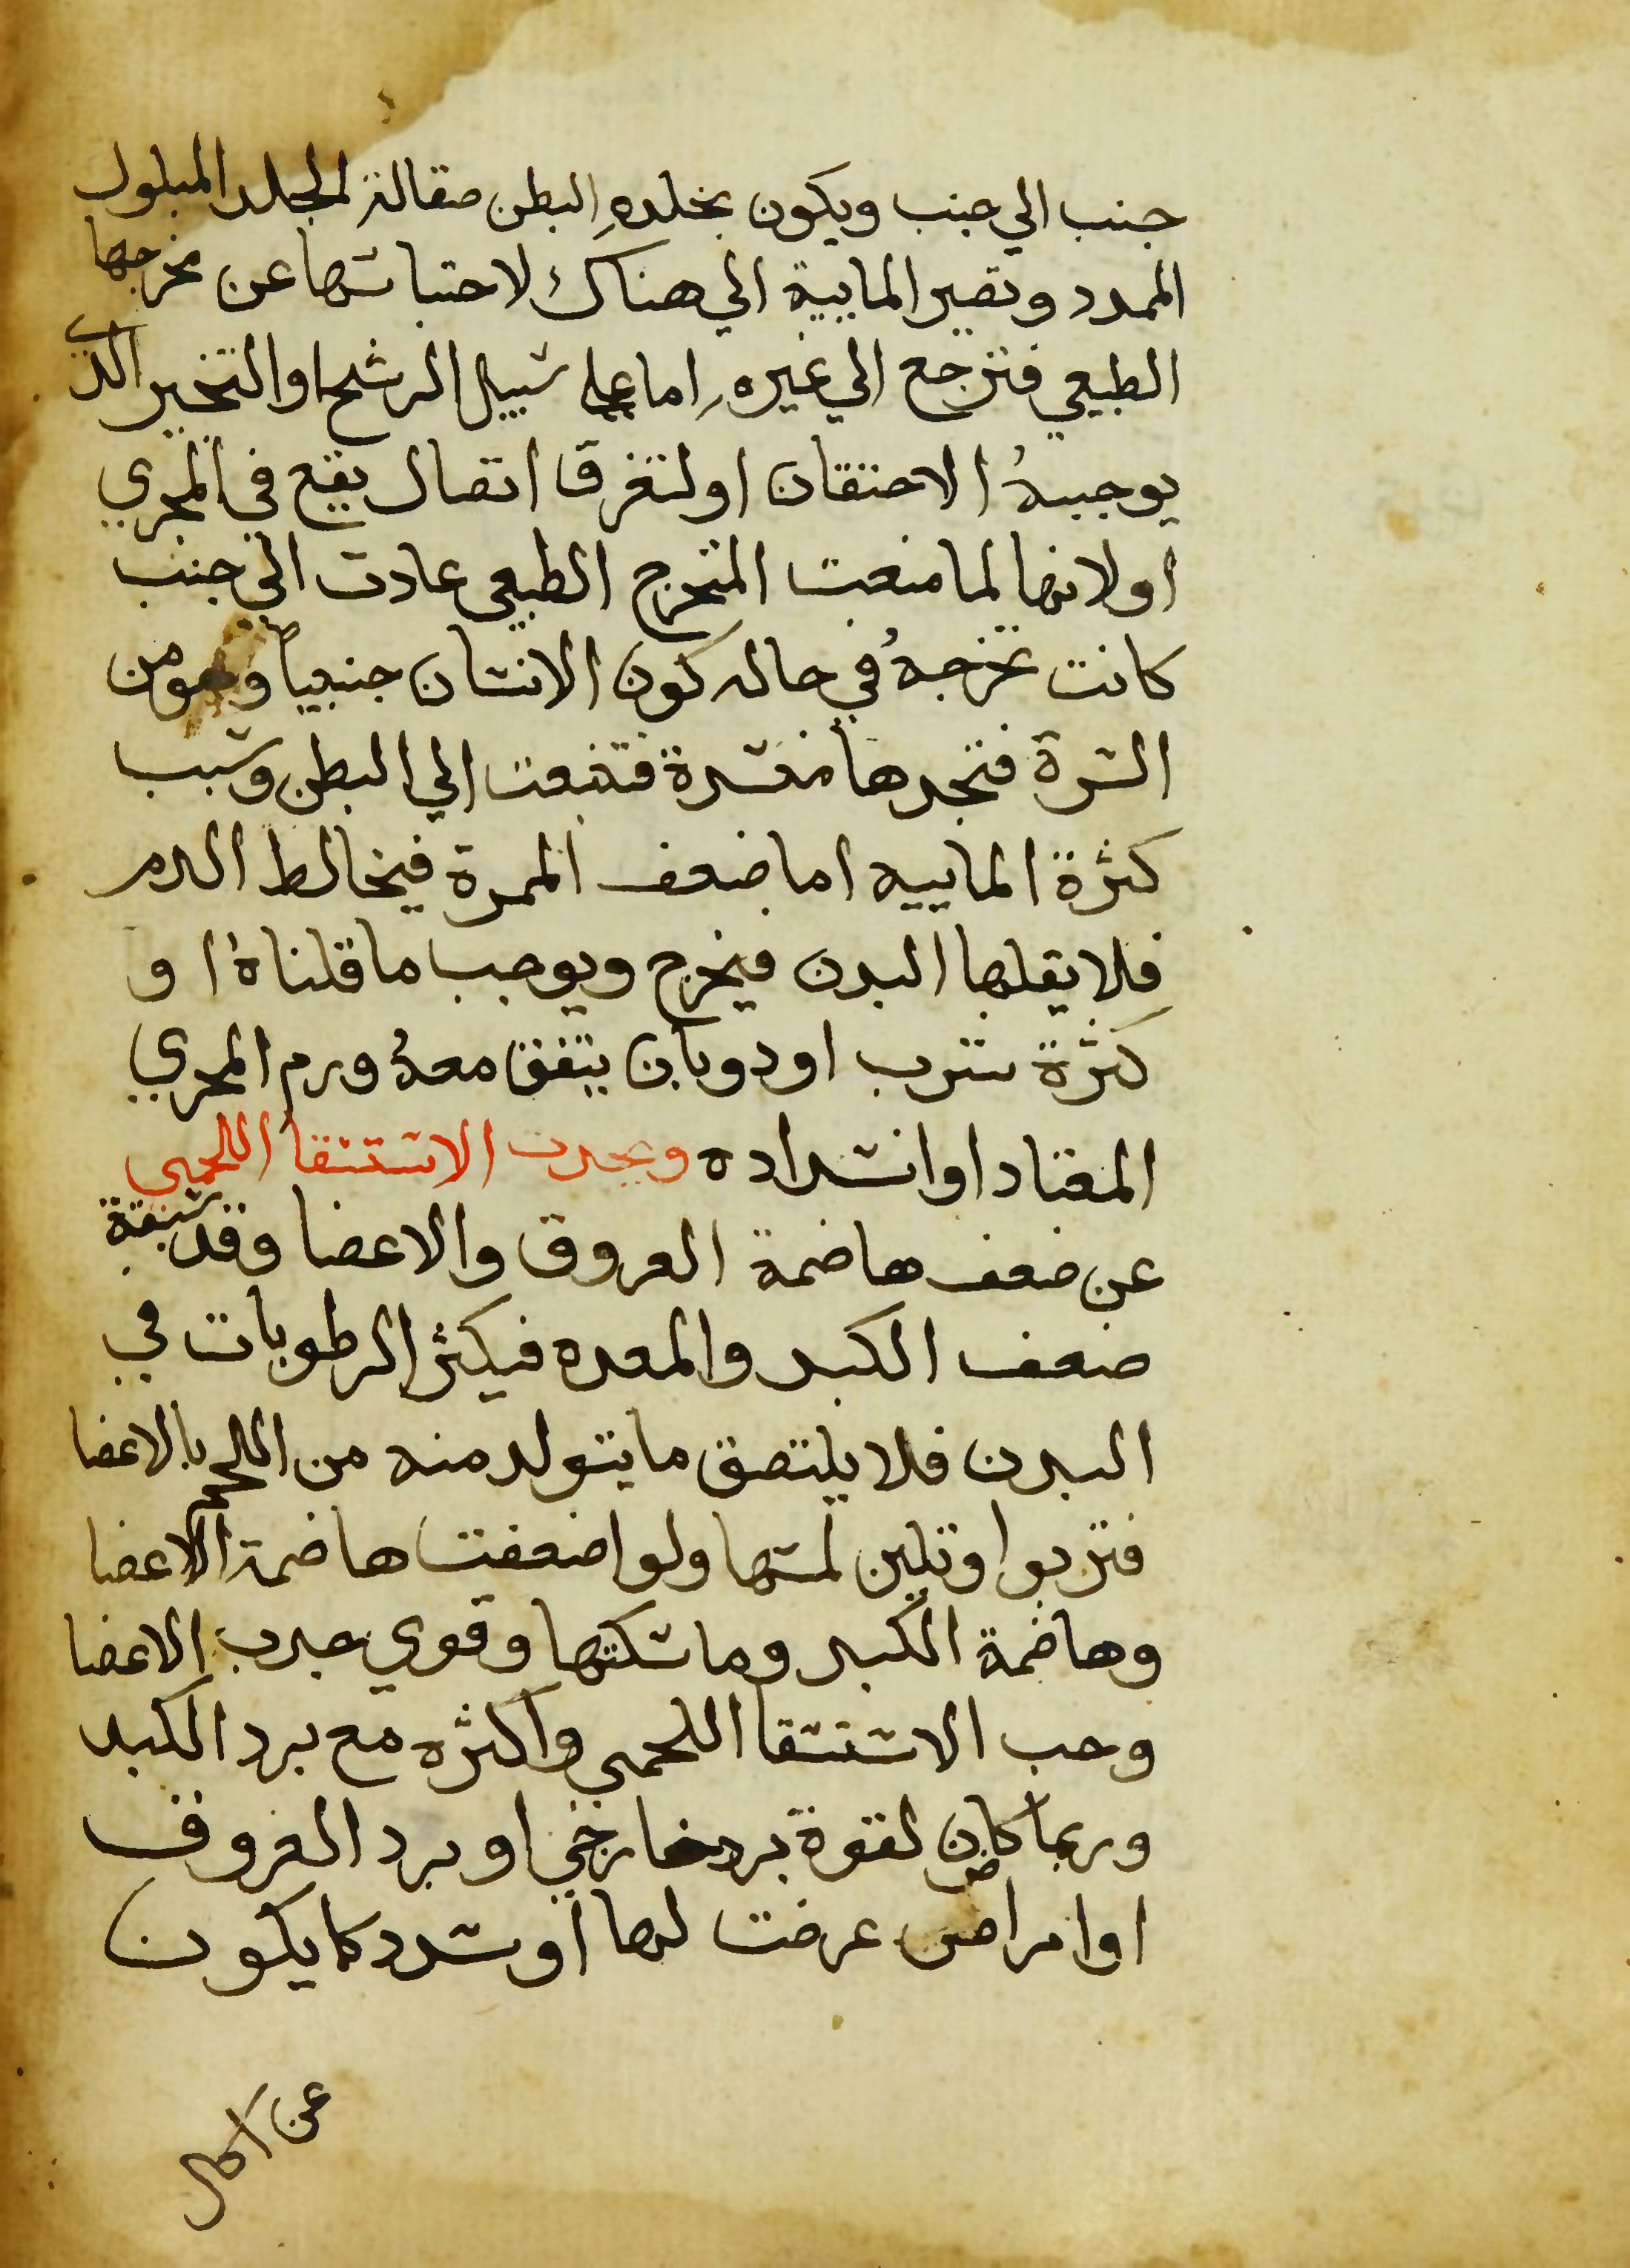 جنب الي جنب ويكون بجلده البطن صقالة لجلد المبلول
الممدد وتصير المايية الي هناك لاحتباسها عن مخرجها
الطبيعي فترجع الي غيره اما علي سبيل الرشح او التخير الذي
يوجبهُ الاحتقان او لتفرق اتصال يقع في المجري
او لانها لما منعت المخرج الطبعي عادت الي جنب
كانت تخرجهُ في حاله كون الانسان جنيياً وهو من
السرة فتجدها منسدة فتنبعث الي البطن وسبب
كثرة الماييه اما ضعف الممرة فيخالط الدم
فلا يقلها البدن فيخرج ويوجب ما قلناهُ او
كثرة شرب او دوبان يتفق معهُ ورم المجري
المعتاد او انسداده ويحدث الاستسقا اللحمي
عن ضعف هاضمة العروق والاعضا وقد سبقة
ضعف الكبد والمعده فيكثر الرطوبات في
البدن فلا يلتصق ما يتولد منه من اللحم بالاعضا
فتربوا وتلين لمسها ولو اضعفت هاضمة الاعضا
وهاضمة الكبد وماسكتها وقوي جدب الاعضا
وجب الاستسقا اللحمي واكثره مع برد الكبد
وربما كان لقوة برد خارجي او برد العروق
او امراض عرضت لها او سدد كما يكون
عن اكل